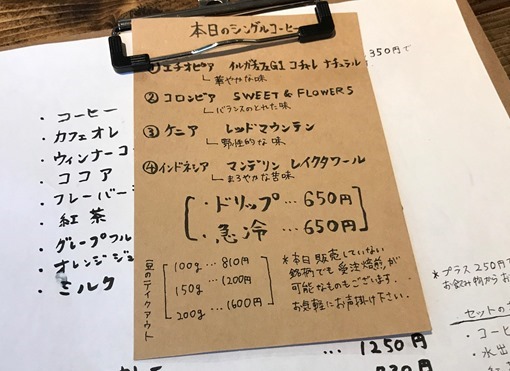 本日のシングルコーヒー
①エチオピア イルガチェフェG1 コチャレ ナチュラル
華やかな味
②コロンビア SWEET & FLOWERS
バランスのとれた味
③ケニア レッドマウンテン
野性的な味
④インドネシア マンデリン レイクタワール
まろやかな苦味
・ドリップ…650円
・急冷…650円
豆のテイクアウト
100g…810円
150g…1200円
200g…1600円
*本日販売していない
銘柄でも受注焙煎が
可能なものもございます。
お気軽にお声掛け下さい。
・コーヒー
・カフェオレ
・ウィンナーコ
・ココア
・フレーバー
・紅茶
・グレープフル
・オレンジジュ
・ミルク
350円で
*プラス250円で
お飲み物から
セットの
・コーヒ
・水出
・紅
…1250円